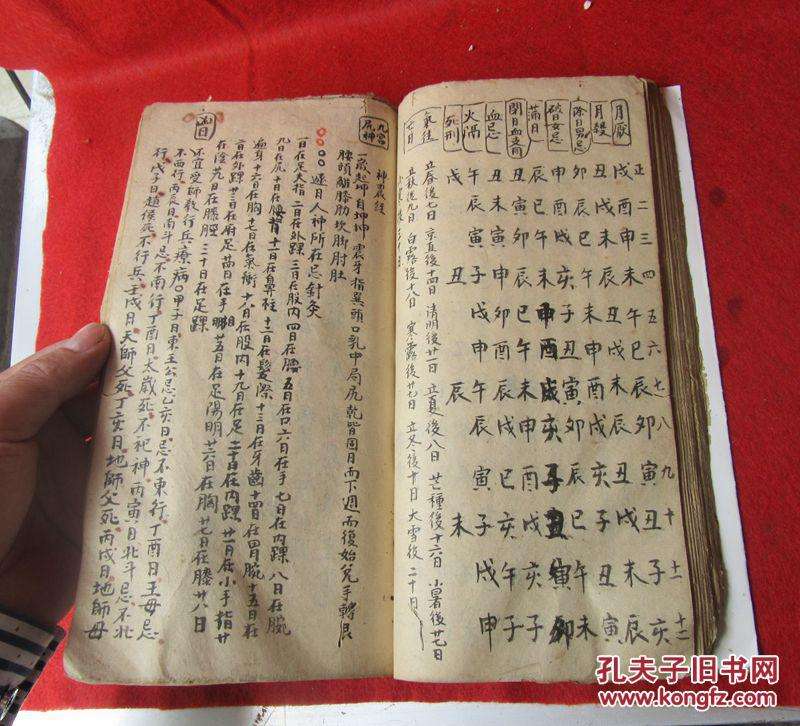 正二三四五六七八九十十一十二
月厭 戌酉申未午巳辰卯寅丑子亥
月殺 丑戌未辰丑戌未辰丑戌未辰
除日男忌 卯辰巳午未申酉戌亥子丑寅
破日女忌 申酉戌亥子丑寅卯辰巳午未
滿日 辰巳午未申酉戌亥子丑寅卯
閉日血支同 丑寅卯辰巳午未申酉戌亥子
血忌 丑未寅申卯酉辰戌巳亥午子
火隔 午辰寅子戌申午辰寅子戌申
死刑 戌 丑 辰 未
立春後七日 京直後十四日 清明後廿一日 立夏後八日 芒種後十六日 小暑後廿七日
立秋後九日 白露後十八日 寒露後廿七日 立冬後十日 大雪後二十日
九宮尻神
一歲起坤自坤坤 震牙指巽頭口乳中局尻乾背面目而下週而復始兌手轉艮
腰頭離膝肋坎脚肘肚
逐日人神所在忌針灸
一日在足大指 二日在外踝 三日在股內 四日在腰 五日在口六日在手七日在內踝 八日在腕
九日在尻十日在腰背十一日在鼻柱十二日在髮際十三日在牙齒十四日在胃腕十五日在
遍身十六日在胸十七日在氣衝十八日在股內十九日在足二十日在內踝廿一日在小手指廿
二日在外踝廿三日在肝足廿四日在手陽廿五日在足陽明廿六日在胸廿七日在膝廿八日
在陰廿九日在膝脛 三十日在足踝
不宜受師教行兵療病〇甲子日東王公忌乙亥日忌不東行丁酉日王母忌
不西行丙辰日南斗忌不南行丁酉日太歲死不祀神丙寅日北斗忌不北
行戊子日趙侯死不行兵壬戌日天師父死丁亥日地師父死丙戌日地師母
孔夫子旧书网
www.kongfz.com